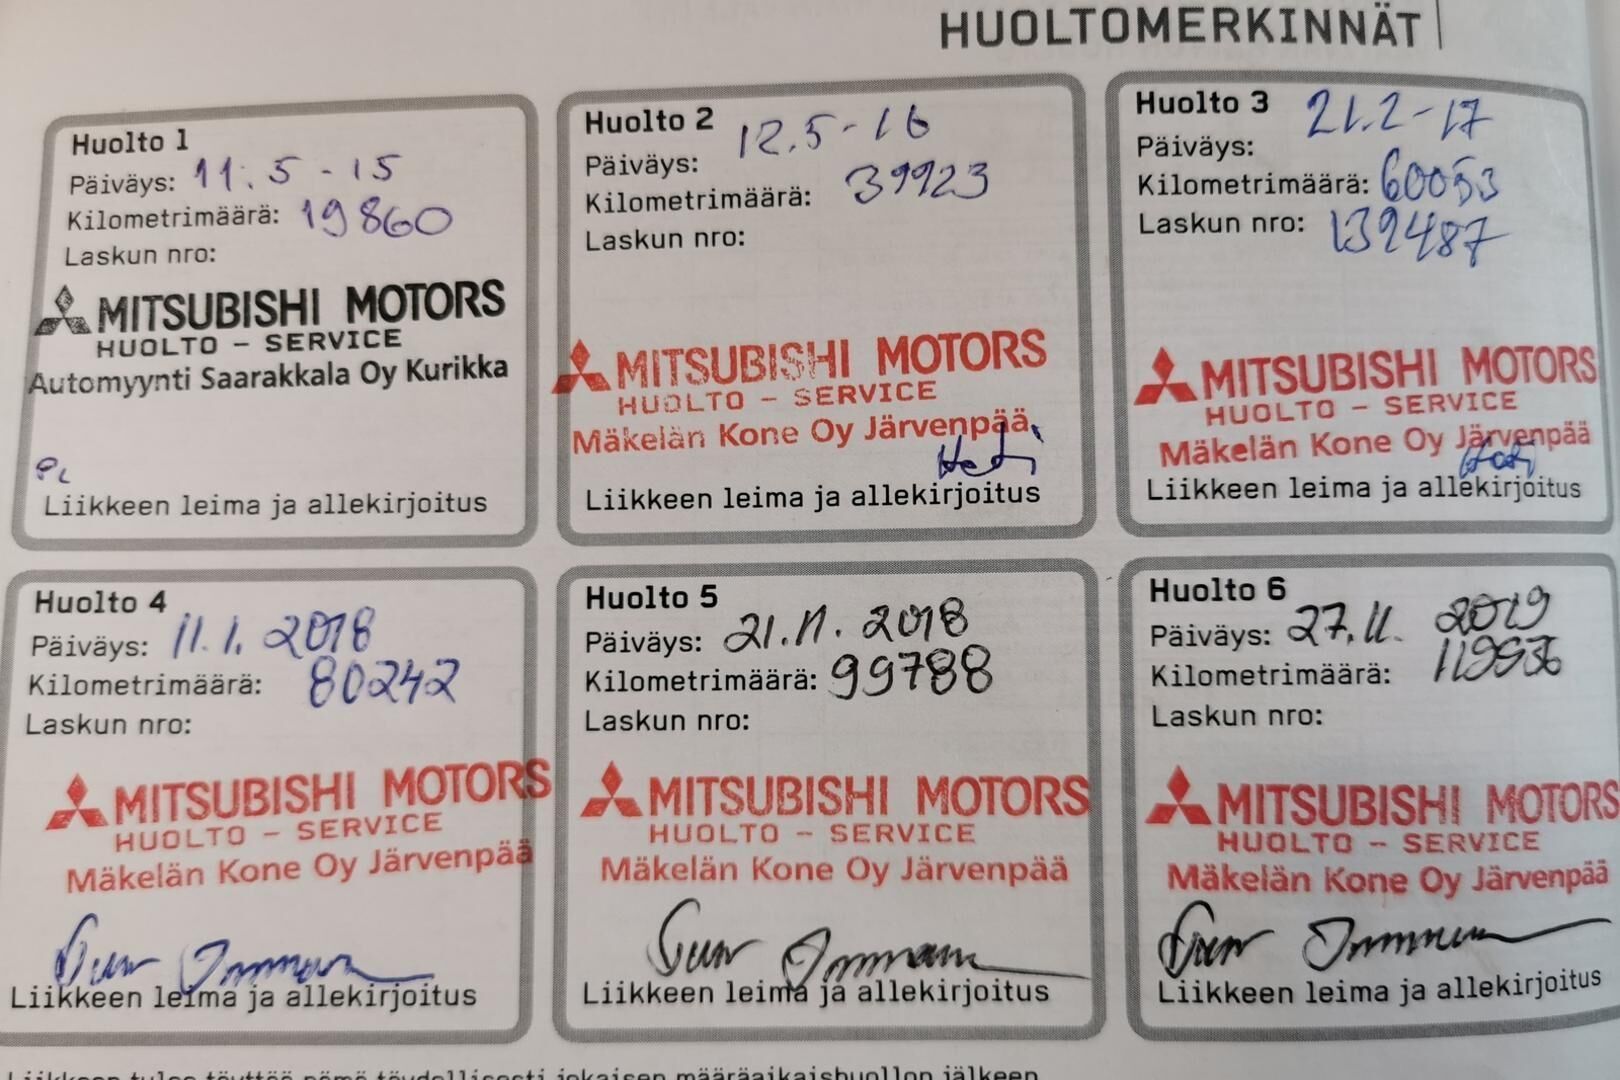 HUOLTOMERKINNÄT
Huolto 1
Päiväys: 11.5-15
Kilometrimäärä: 19860
Laskun nro:
MITSUBISHI MOTORS
HUOLTO - SERVICE
Automyynti Saarakkala Oy Kurikka
Liikkeen leima ja allekirjoitus
Huolto 2
Päiväys: 12.5-16
Kilometrimäärä: 39923
Laskun nro:
MITSUBISHI MOTORS
HUOLTO - SERVICE
Mäkelän Kone Oy Järvenpää
Liikkeen leima ja allekirjoitus
Huolto 3
Päiväys: 21.2-17
Kilometrimäärä: 60053
Laskun nro: 132487
MITSUBISHI MOTORS
HUOLTO - SERVICE
Mäkelän Kone Oy Järvenpää
Liikkeen leima ja allekirjoitus
Huolto 4
Päiväys: 11.1.2018
Kilometrimäärä: 80242
Laskun nro:
MITSUBISHI MOTORS
HUOLTO - SERVICE
Mäkelän Kone Oy Järvenpää
Liikkeen leima ja allekirjoitus
Huolto 5
Päiväys: 21.11.2018
Kilometrimäärä: 99788
Laskun nro:
MITSUBISHI MOTORS
HUOLTO - SERVICE
Mäkelän Kone Oy Järvenpää
Liikkeen leima ja allekirjoitus
Huolto 6
Päiväys: 27.11.2019
Kilometrimäärä:
Laskun nro:
MITSUBISHI MOTORS
HUOLTO - SERVICE
Mäkelän Kone Oy Järvenpää
Liikkeen leima ja allekirjoitus
Liikkeen tulee täyttää tämä täydellisesti jokaisen määräaikaishuollon jälkeen